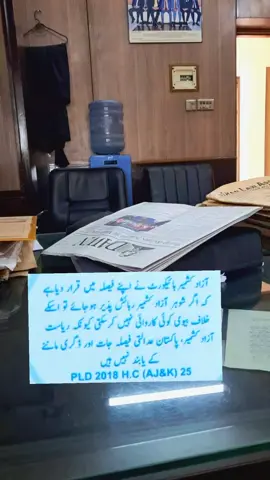 آزاد کشمیر ہائیکورٹ نے اپنے فیصلہ میں قرار دیا ہے
کہ اگر شوہر آزاد کشمیر رہائش پذیر ہو جائے تو اسکے
خلاف بیوی کوئی کاروائی نہیں کر سکتی کیونکہ ریاست
آزاد کشمیر، پاکستان عدالتی فیصلہ جات اور ڈگری ماننے
کے پابند نہیں ہیں
PLD 2018 H.C (AJ&K) 25